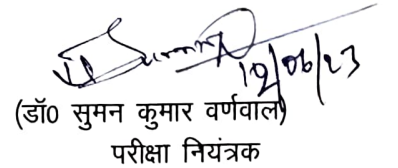 19/06/23
(डॉ0 सुमन कुमार वर्णवाल)
परीक्षा नियंत्रक